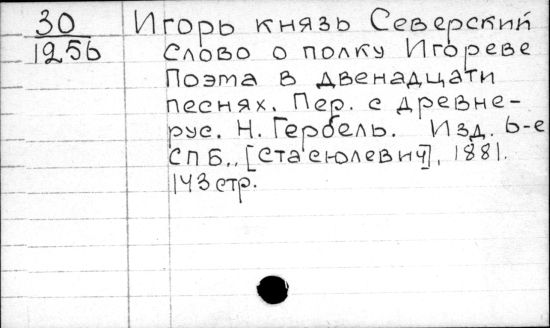 30 Игорь князь Северский
1256 Слово о полку Игореве
Поэма в двенадцати
песнях. Пер. с древне-
рус. Н. Гербель. Изд. 6-е
СПБ., [Стасюлевич], 1881.
143 стр.